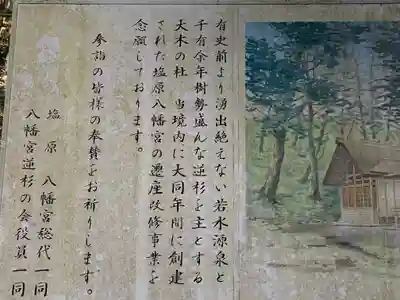 有史前より湧出絶えない若水源泉と
千有余年樹勢盛んな逆杉を主とする
大木の杜 当境内に大同年間に創建
された塩原八幡宮の遷座改修事業を
念願しております。
参詣の皆様の奉賛をお祈りします。
塩原 八幡宮総代一同
八幡宮逆杉の会役員一同